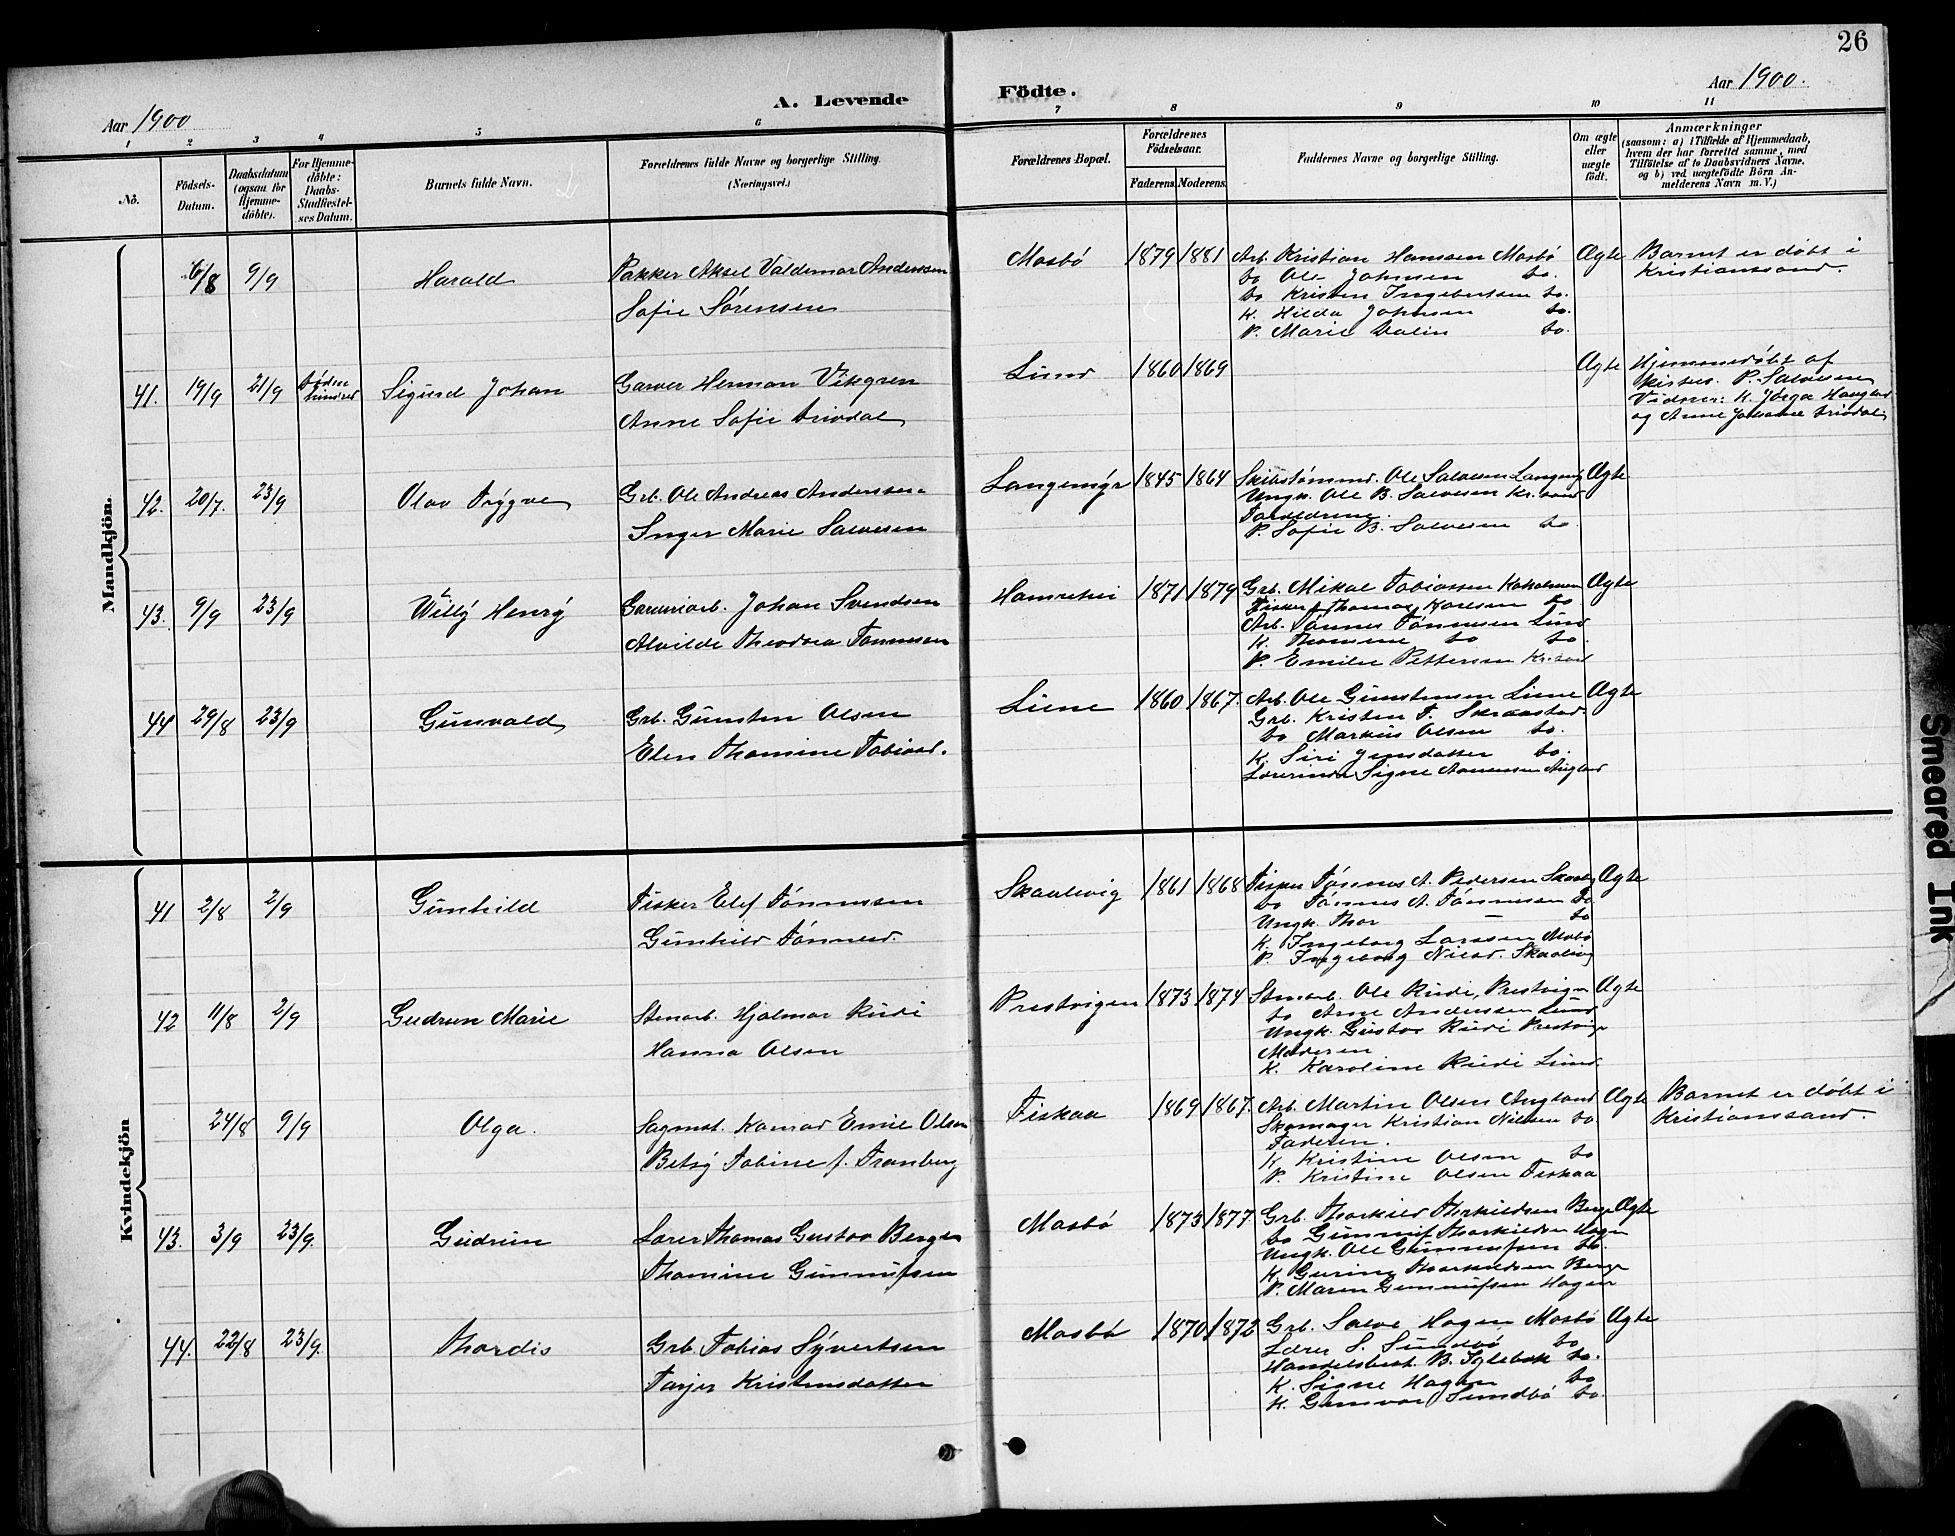 26
Aar 1900
A. Levende
Födte.
Aar 1900.
1 2 3 4 5 6 7 8 9 10 11
No.
Födsels-Datum.
Daabsdatum (ogsaa for Hjemmedöbte).
For Hjemmedöbte: Daabs-Stadfæstelses Datum.
Barnets fulde Navn.
Forældrenes fulde Navne og borgerlige Stilling. (Næringsvei.)
Forældrenes Bopæl.
Forældrenes Födselsaar.
Faderens. Moderens.
Faddernes Navne og borgerlige Stilling.
Om ægte eller uægte födt.
Anmærkninger
(saasom: a) i Tilfælde af Hjemmedaab, hvem der har forrettet samme, med Tilföielse af to Daabsvidners Navne, og b) ved uægtefödte Börn Anmelderens Navn m. V.)
Mandkjön.
6/8 9/9 Harald
Pakker Aksel Valdemar Anderssen
Sofie Sørensen
Mosbö 1879 1881
Arb. Kristian Hansen Mosbö
do Ole Johnsen do.
do Kristen Ingebertsen do.
K. Hilda Johnsen do.
P. Marie Dalin do.
Ægte
Barnet er döbt i
Kristianssand.
41. 19/9 21/9 døden hindred Sigurd Johan
Garver Herman Vikgren
Anne Sofie Drivdal
Lund 1860 1869
Ægte
Hjemmedöbt af
P. Salvesen
Vidner: K.
og Anne Johanne Drivdal
42. 20/7. 23/9 Olav Trygve
Grb. Ole Andreas Anderssen
Inger Marie Salvesen
Langemyr 1845 1864
Skibstømmd. Ole Salvesen Langemyr
Ungk. Ole B. Salvesen Kr.sand
Forældrene.
P. Sofie B. Salvesen do
Ægte
43. 9/9 23/9 Willy Henry
Garveriarb. Johan Svendsen
Alvilde Theodora Tønnesen
Hamrehei 1871 1879
Grb. Mikal Tobiassen
Fisker Thomas Karlsen do
Arb. Tønnes Tønnesen Lund
K. Thomine do do.
P. Emilie Pettersen Kr.sand
Ægte
44 29/8 23/9 Gunvald
Grb. Gunsten Olsen
Elen Thomine Tobiasd.
Liene 1860 1867.
Arb. Ole Gunstensen Liene
Grb. Kristen T. Skraastad.
do Markus Olsen do.
K. Siri Jensdatter do.
Lærerinde Signe Aanensen Augland
Ægte
Kvindekjön
41 2/8 2/9 Gunhild
Fisker Elef Tönnesen
Gunhild Tönnesd.
Skaalevig 1861 1868
Fisker Tönnes A. Pedersen Skaalevg
do Tönnes A. Tönnesen do
Ungk. Thor — do
K. Ingeborg Larssen Mosbö
P. Ingeborg Nilsd. Skaalevig
Ægte
42 11/8 2/9 Gudrun Marie
Stenarb. Hjalmar Rudi
Hanna Olsen
Prestvigen 1873 1874
Stenarb. Ole Rudi, Prestvigen
do Arne Andersen Lund
Ungk. Gustav Rudi Prestvign
Moderen
K. Karoline Rudi Lund.
Ægte
24/8 9/9 Olga.
Sagmst. Konrad Emil Olsen
Betsy Tobine f. Tranberg
Fiskaa 1869 1867.
Arb. Martin Olsen Augland
Skomager Kristian Nielsen do.
Faderen.
K. Kristine Olsen do
P. Kristine Olsen Fiskaa
Ægte
Barnet er döbt i
Kristianssand.
43. 3/9 23/9. Gudrun
Lærer Thomas Gustav Berge
Thomine Gunnufsen
Mosbö 1873 1877.
Grb. Thorkild Therkildsen Berge
do Gunnuf Thorkildsen Hagen
Ungk. Ole Gunnufsen do.
K. Gurine Thorkildsen Berge
P. Maren Gunnufsen Hagen
Ægte
44. 22/8 23/9. Thordis
Grb. Tobias Syvertsen
Tarjer Kristensdatter
Mosbö 1870 1872
Grb. Salve Hagen Mosbö
Lærer S. Sundbö do
Handelsbest. B. Iglebæk do.
K. Signe Hagen do
K. Gunvor Sundbö do.
Ægte
Smeared Ink